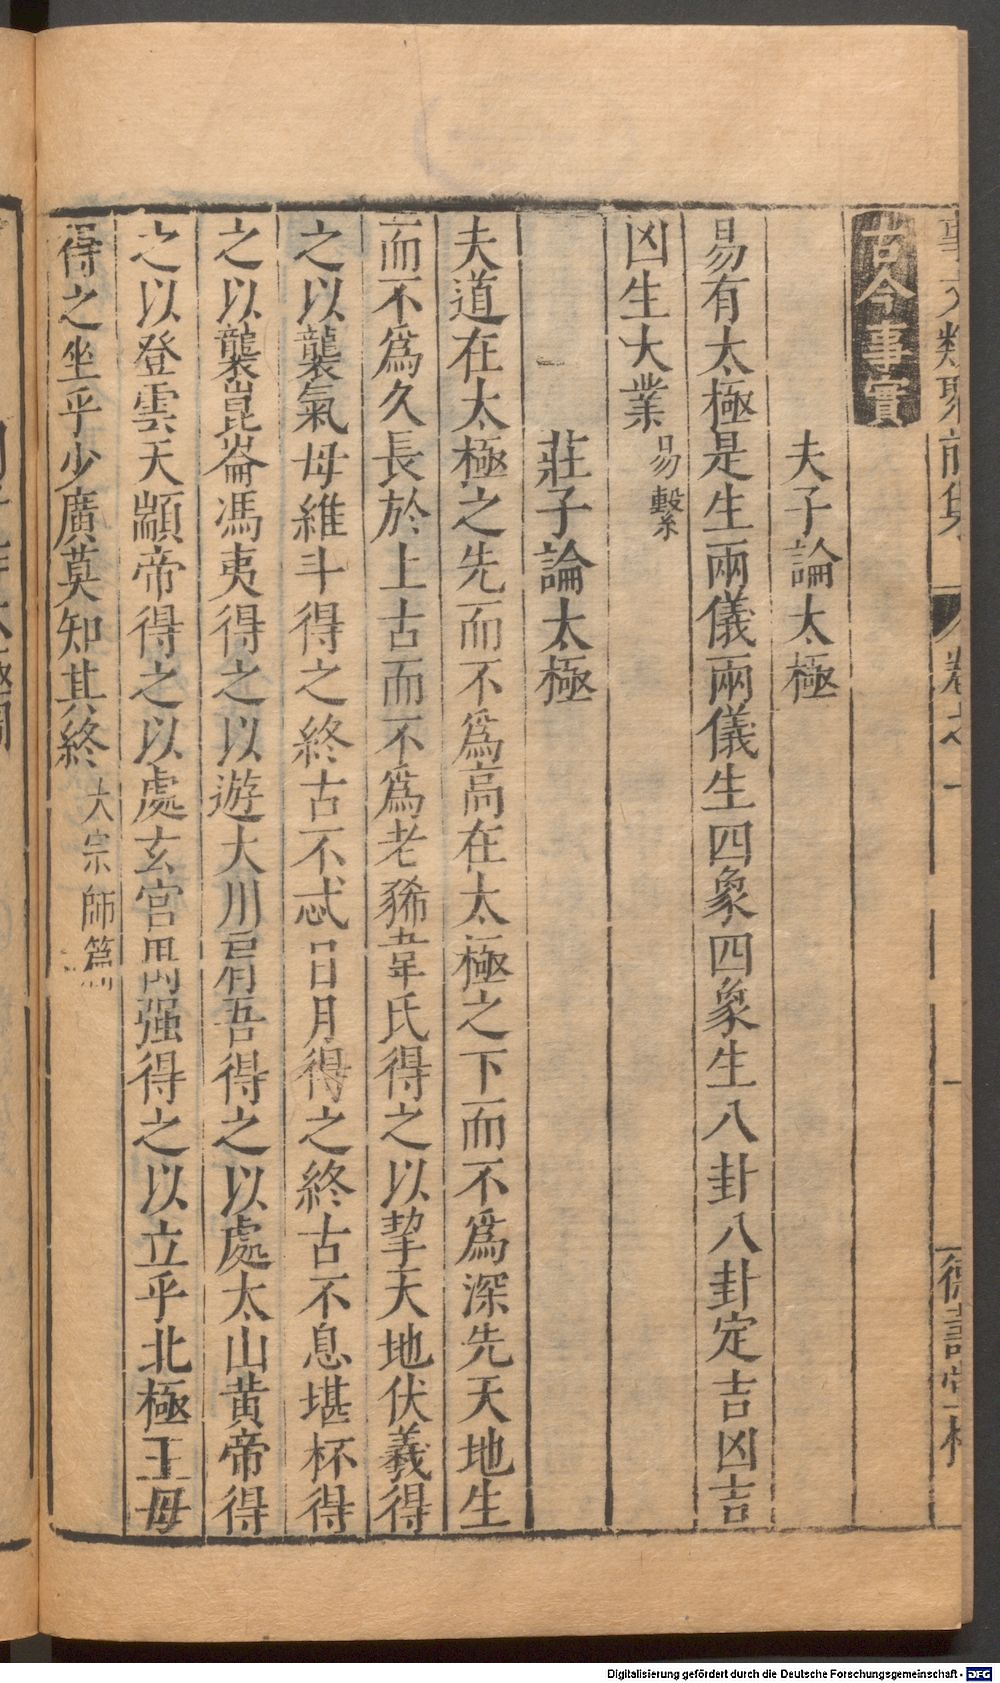 事文類聚前集 卷之一 一 德壽堂梓
古今事實
夫子論太極
易有太極是生兩儀兩儀生四象四象生八卦八卦定吉凶吉
凶生大業易繫
莊子論太極
夫道在太極之先而不爲高在太極之下而不爲深先天地生
而不爲久長於上古而不爲老豨韋氏得之以挈天地伏羲得
之以襲氣母維斗得之終古不忒日月得之終古不息堪杯得
之以襲崑崙馮夷得之以遊大川肩吾得之以處太山黃帝得
之以登雲天顓帝得之以處玄宮禺强得之以立乎北極王母
得之坐乎少廣莫知其終大宗師篇
Digitalisierung gefördert durch die Deutsche Forschungsgemeinschaft - DFG